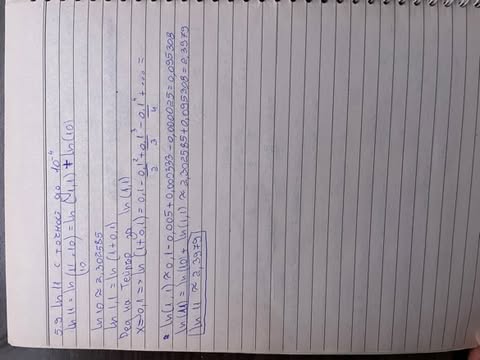 5.9 ln 11 с точност до 10⁻⁴
ln 11 = ln (11/10 · 10) = ln (1,1) + ln(10)
ln 10 ≈ 2,302585
ln 1,1 = ln (1+0,1)
Ред на Тейлър за ln(1,1)
x=0,1 => ln (1+0,1) = 0,1 - 0,1²/2 + 0,1³/3 - 0,1⁴/4 + ... =
≈ ln(1,1) ≈ 0,1 - 0,005 + 0,000333 - 0,000025 = 0,095308
ln(11) = ln(10) + ln(1,1) ≈ 2,302585 + 0,095308 = 2,3979
ln 11 ≈ 2,3979